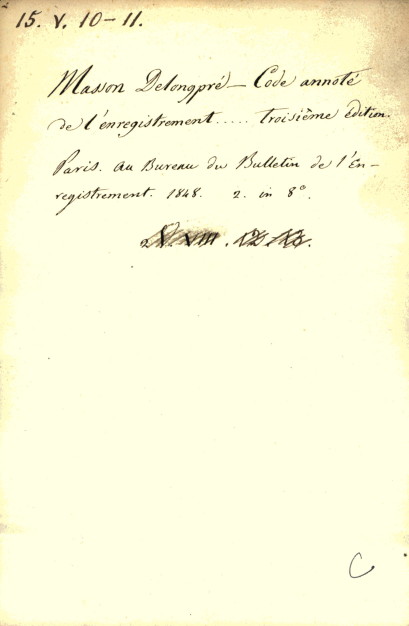 15. V. 10-11.
Masson Delongpré — Code annoté
de l'enregistrement ..... troisième édition.
Paris. Au Bureau du Bulletin de l'En-
registrement. 1848. 2. in 8°.
C